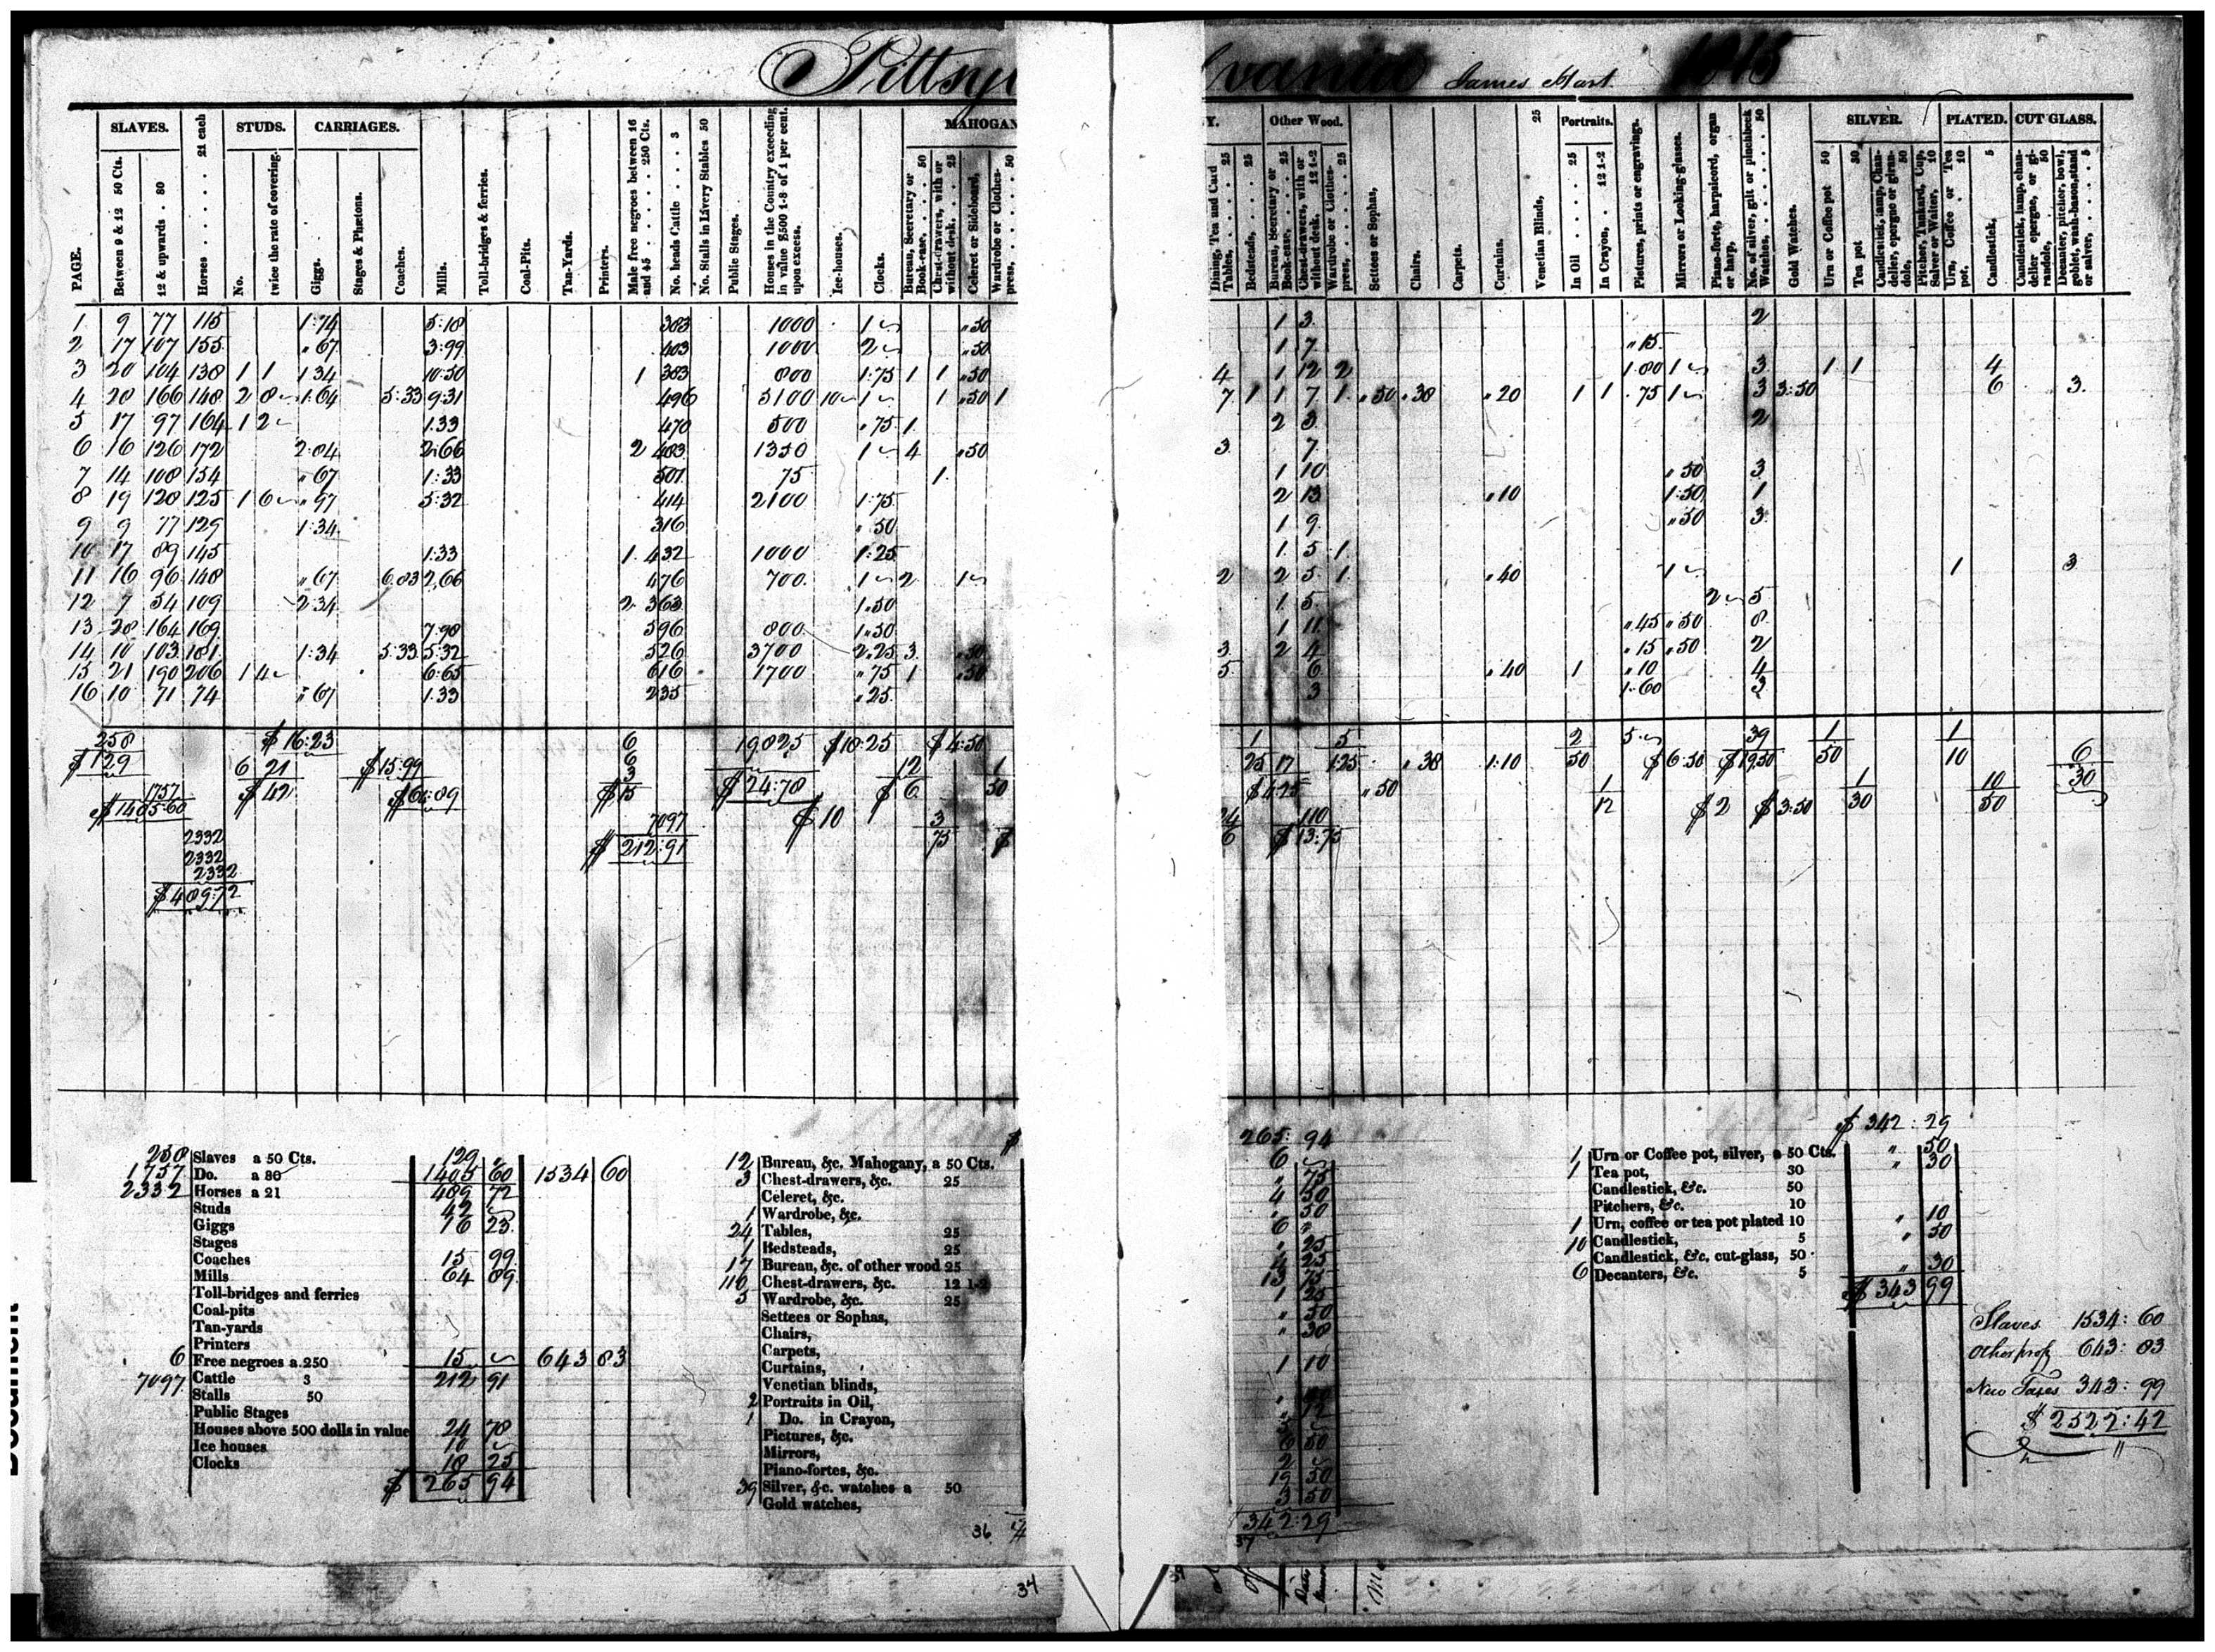 Pittsylvania James Hart 1815
SLAVES. STUDS. CARRIAGES. MAHOGAN Y. Other Wood. Portraits. SILVER. PLATED. CUT GLASS.
PAGE.
Between 9 & 12 50 Cts.
12 & upwards . 80
Horses . . . . . 21 each
No.
twice the rate of covering.
Giggs.
Stages & Phætons.
Coaches.
Mills.
Toll-bridges & ferries.
Coal-Pits.
Tan-Yards.
Printers.
Male free negroes between 16 and 45 . . . . . 250 Cts.
No. heads Cattle . . . 3
No. Stalls in Livery Stables 50
Public Stages.
Houses in the Country exceeding in value $500 1-8 of 1 per cent. upon excess.
Ice-houses.
Clocks.
Bureau, Secretary or Book-case, . . . . 50
Chest-drawers, with or without desk. . . . 25
Celeret or Sideboard,
Wardrobe or Clothes-press, . . . . . 50
Dining, Tea and Card Tables, . . . . 25
Bedsteads, . . . . 25
Bureau, Secretary or Book-case, . . . . 25
Chest-drawers, with or without desk. 12 1-2
Wardrobe or Clothes-press, . . . . 25
Settees or Sophas,
Chairs,
Carpets,
Curtains,
Venetian Blinds, 25
In Oil . . . . . 25
In Crayon, . . 12 1-2
Pictures, prints or engravings.
Mirrors or Looking-glasses.
Piano-forte, harpsicord, organ or harp,
No. of silver, gilt or pinchbeck Watches, . . . . . 50
Gold Watches.
Urn or Coffee pot 50
Tea pot 30
Candlestick, lamp, Chandelier, epergne or girandole, 50
Pitcher, Tankard, Cup, Salver or Waiter, 10
Urn, Coffee or Tea pot. 10
Candlestick, 5
Candlestick, lamp, chandelier epergne, or girandole, 50
Decanter, pitcher, bowl, goblet, wash-bason, stand or salver, . . . . . 5
1 9 77 115 1:74 5:18 383 1000 1 „50 1 3 2
2 17 107 155 „67 3:99 403 1000 2 „50 1 7 „15
3 20 104 138 1 1 1 34 10:50 1 383 800 1:75 1 1 „50 4 1 12 2 1:80 1 3 1 1 4
4 28 166 148 2 8 1:64 5:33 9:31 496 5100 10 1 1 „50 1 7 1 1 7 1 „50 „38 „20 1 1 .75 1 3 3:50 6 3
5 17 97 164 1 2 1.33 470 500 .75 1 2 3 2
6 16 126 172 2:04 2:66 2 483 1350 1 4 „50 3 7
7 14 108 154 „67 1:33 501 75 1 1 10 „50 3
8 19 128 125 1 6 „97 5:32 414 2100 1:75 2 13 „10 1:50 1
9 9 77 129 1:34 316 „50 1 9 „50 3
10 17 89 145 1:33 1 432 1000 1:25 1 5 1
11 16 96 148 „67 6.83 2,66 476 700 1 2 1 2 2 5 1 „40 1 1 3
12 7 54 109 2:34 2 363 1.50 1 5 2 5
13 28 164 169 7:98 596 800 1„50 1 11 „45 „50 8
14 10 103 181 1:34 5:33 5:32 526 3700 2.25 3 „50 3 2 4 „15 „50 2
15 21 190 206 1 4 6:65 616 1700 „75 1 „50 5 6 „40 1 „10 4
16 10 71 74 „67 1:33 235 „25 3 1.60 3
258 $16:23 6 19825 $18:25 $4:50 1 5 2 5 39 1 1
$129 6 21 $15:99 6 12 1 25 17 1:25 „38 1:10 50 $6:50 $19.50 50 10 6
1757 $42 $64:89 3 $24:78 $6 50 $4.25 „50 1 1 10 30
$1405:60 $15 $10 12 $2 $3:50 30 50
7097 3 24 110
2332 $212:91 75 $ 6 $13:75
2332
2332
$489:72
258 Slaves a 50 Cts. 129 „
1757 Do. a 80 1405 60 1534 60
2332 Horses a 21 489 72
Studs 42
Giggs 16 23
Stages
Coaches 15 99
Mills 64 89
Toll-bridges and ferries
Coal-pits
Tan-yards
Printers
6 Free negroes a 250 15 643 83
7097 Cattle 3 212 91
Stalls 50
Public Stages
Houses above 500 dolls in value 24 78
Ice houses 10
Clocks 18 25
$ 265 94
$ 265: 94
12 Bureau, &c. Mahogany, a 50 Cts. 6
3 Chest-drawers, &c. 25 „ 75
Celeret, &c. 4 50
1 Wardrobe, &c. „ 50
24 Tables, 25 6 „
1 Bedsteads, 25 „ 25
17 Bureau, &c. of other wood 25 4 25
110 Chest-drawers, &c. 12 1-2 13 75
5 Wardrobe, &c. 25 1 25
Settees or Sophas, „ 50
Chairs, „ 38
Carpets,
Curtains, 1 10
Venetian blinds,
2 Portraits in Oil,
1 Do. in Crayon, 12
Pictures, &c. 5
Mirrors, 6 50
Piano-fortes, &c. 2
39 Silver, &c. watches a 50 19 50
Gold watches, 3 50
342:29
$342:29
1 Urn or Coffee pot, silver, a 50 Cts. „ 50
1 Tea pot, 30 „ 30
Candlestick, &c. 50
Pitchers, &c. 10
1 Urn, coffee or tea pot plated 10 „ 10
10 Candlestick, 5 „ 50
Candlestick, &c. cut-glass, 50
6 Decanters, &c. 5 „ 30
$ 343 99
Slaves 1534: 60
Other prop 643: 83
New Taxes 343: 99
$ 2522: 42
36
37
34